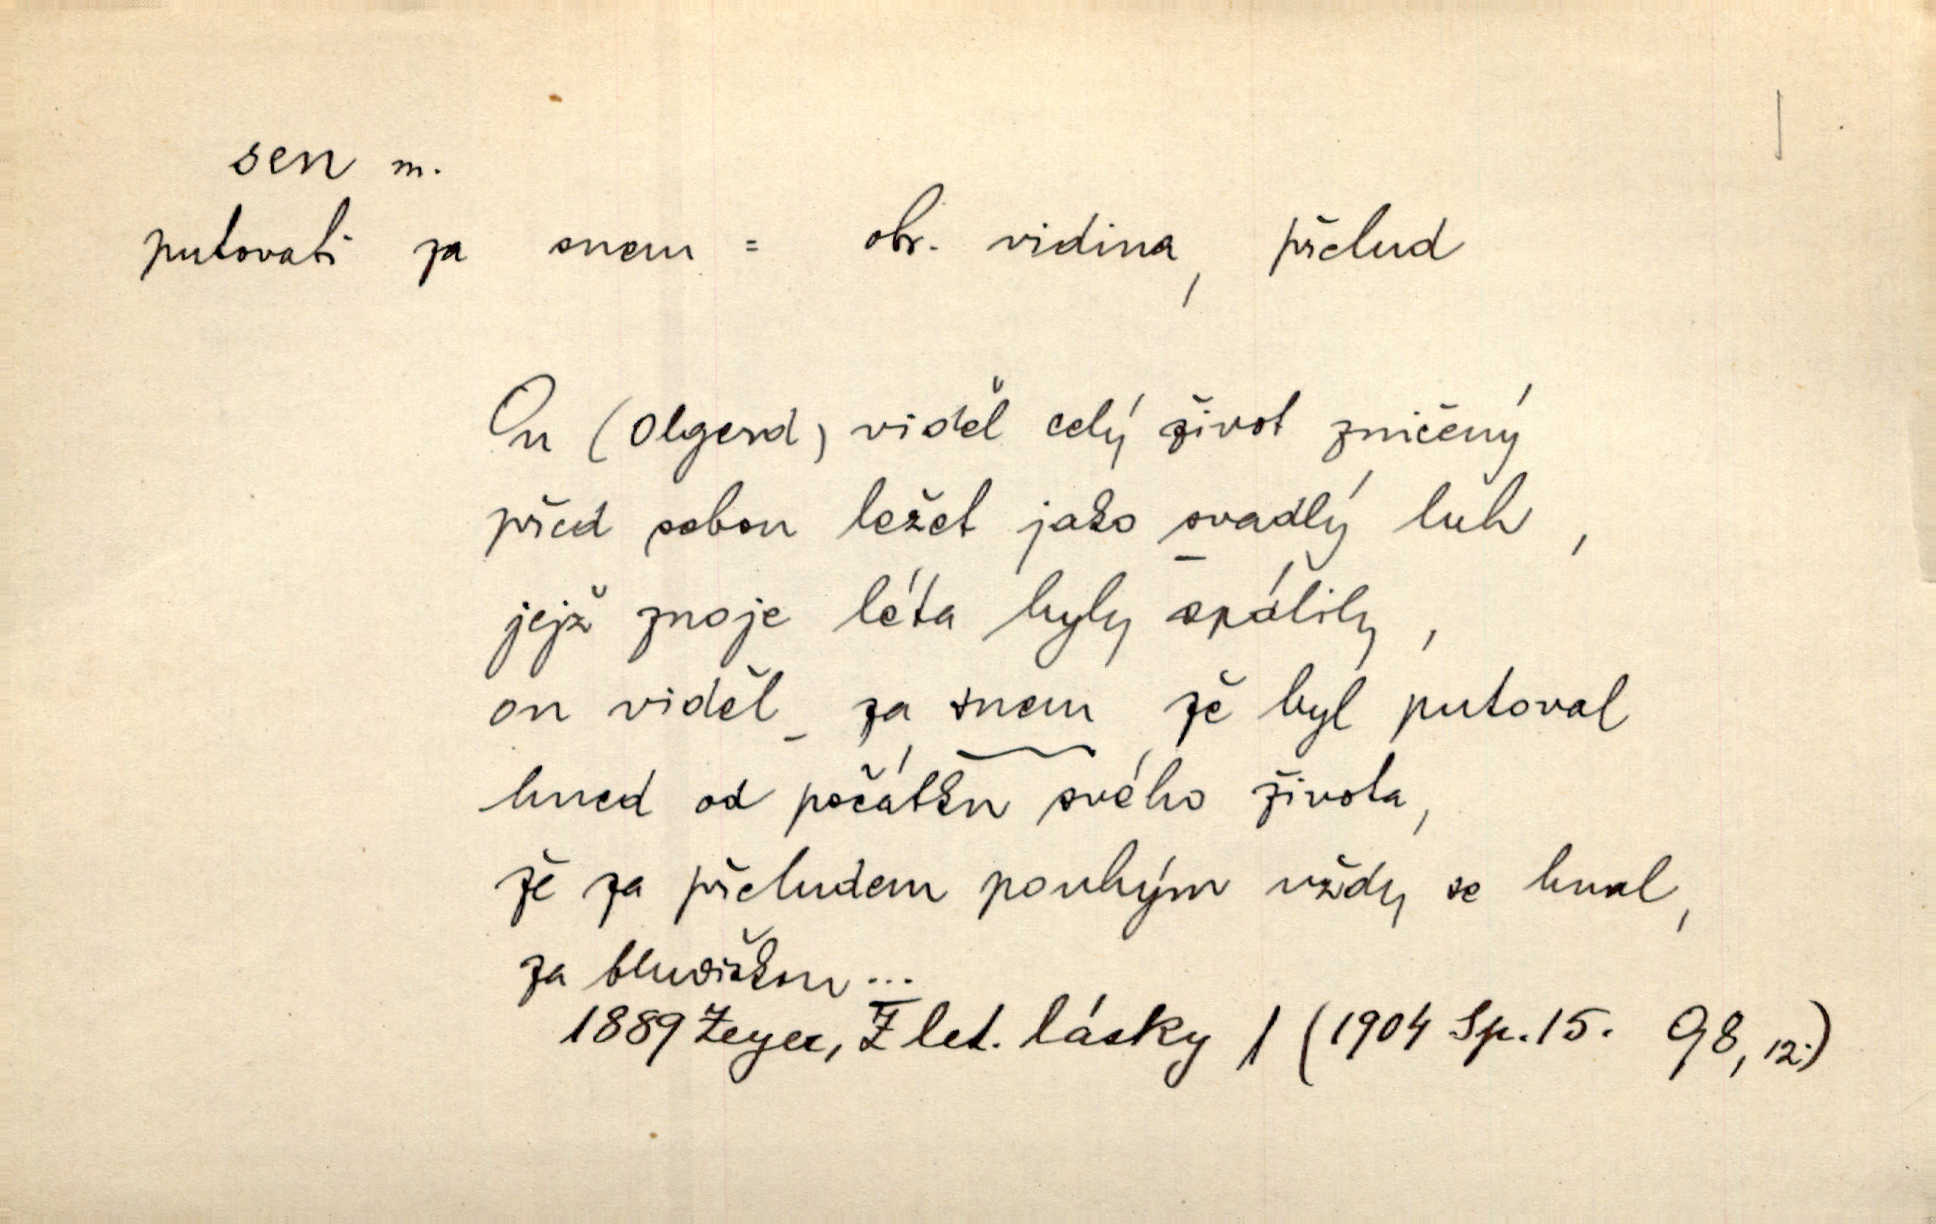 sen m.
putovati za snem = obr. vidina, přelud
On (Olgerd) viděl celý život zničený
před sebou ležet jako svadlý luh,
jejž znoje léta byly spálily,
on viděl_ za snem že byl putoval
hned od počátku svého života,
že za přeludem pouhým vždy se hnal,
za bludičkou...
1889 Zeyer, Z let. lásky / (1904 Sp. 15. 98, 12.)